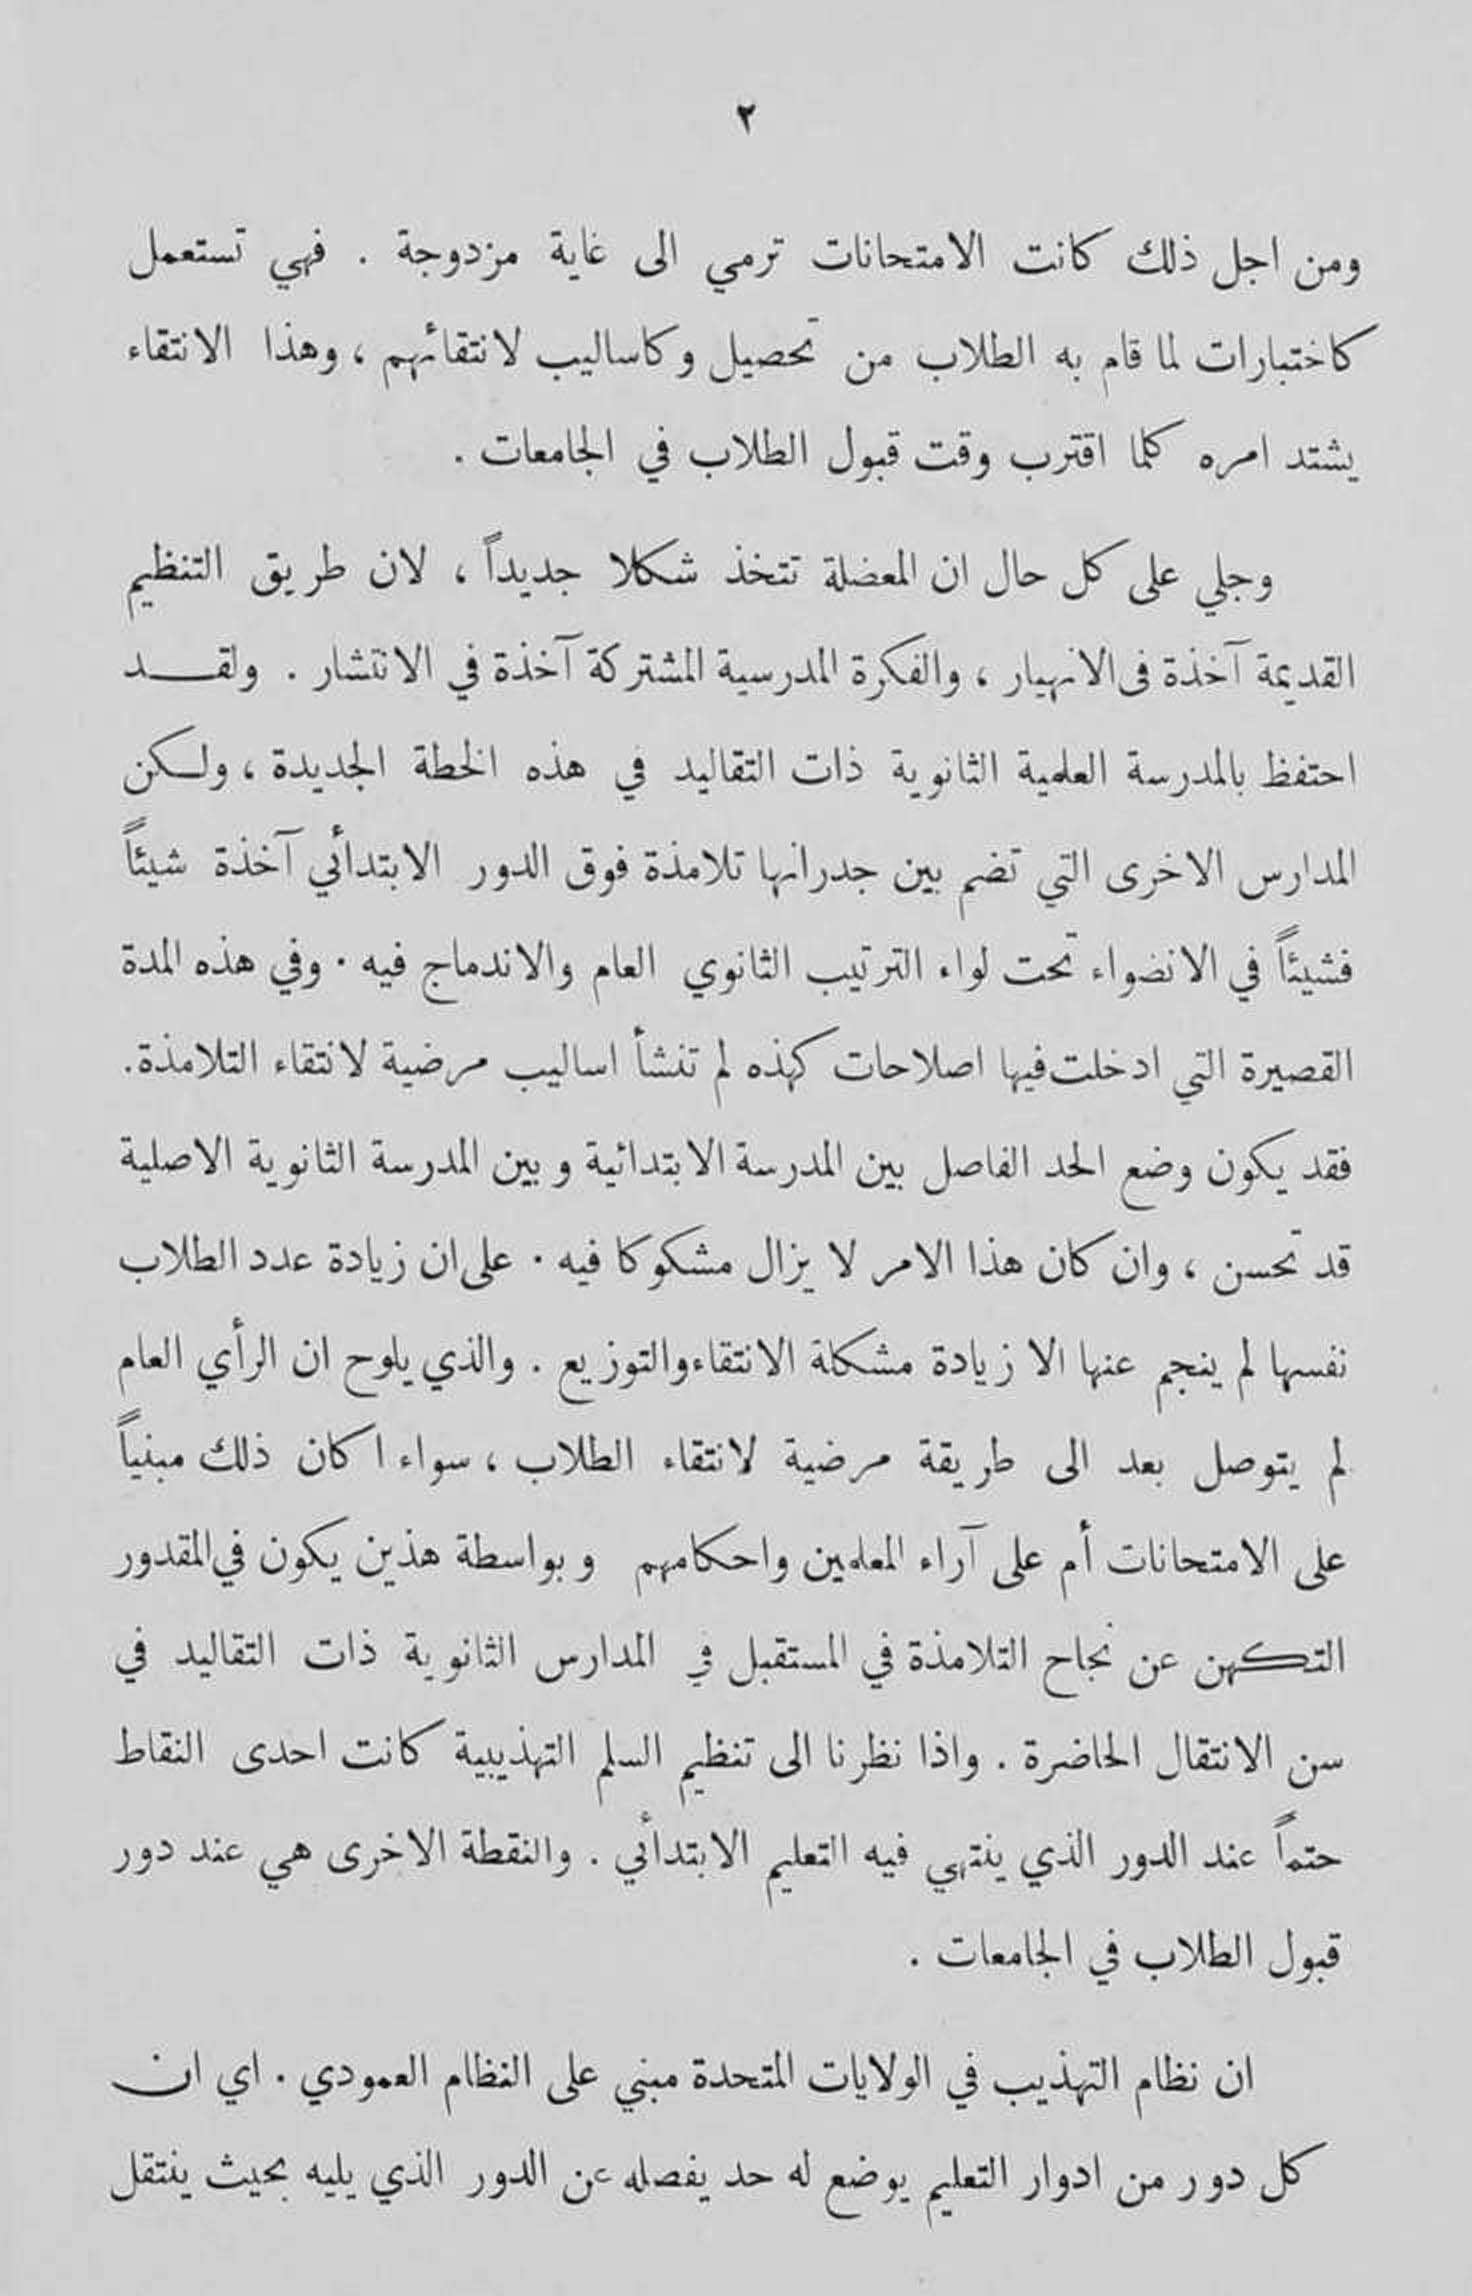 ٢
ومن اجل ذلك كانت الامتحانات ترمي الى غاية مزدوجة . فهي تستعمل
كاختبارات لما قام به الطلاب من تحصيل وكاساليب لانتقائهم ، وهذا الانتقاء
يشتد امره كلما اقترب وقت قبول الطلاب في الجامعات .
وجلي على كل حال ان المعضلة تتخذ شكلا جديداً ، لان طريق التنظيم
القديمة آخذة فى الانهيار ، والفكرة المدرسية المشتركة آخذة في الانتشار . ولقـــد
احتفظ بالمدرسة العلمية الثانوية ذات التقاليد في هذه الخطة الجديدة ، ولـكن
المدارس الاخرى التي تضم بين جدرانها تلامذة فوق الدور الابتدأئي آخذة شيئاً
فشيئاً في الانضواء تحت لواء الترتيب الثانوي العام والاندماج فيه . وفي هذه المدة
القصيرة التي ادخلت فيها اصلاحات كهذه لم تنشأ اساليب مرضية لانتقاء التلامذة.
فقد يكون وضع الحد الفاصل بين المدرسة الابتدائية وبين المدرسة الثانوية الاصلية
قد تحسن ، وان كان هذا الامر لا يزال مشكوكا فيه . على ان زيادة عدد الطلاب
نفسها لم ينجم عنها الا زيادة مشكلة الانتقاء والتوزيع . والذي يلوح ان الرأي العام
لم يتوصل بعد الى طريقة مرضية لانتقاء الطلاب ، سواء اكان ذلك مبنياً
على الامتحانات أم على آراء المعلمين واحكامهم وبواسطة هذين يكون في المقدور
التـكهن عن نجاح التلامذة في المستقبل في المدارس الثانوية ذات التقاليد في
سن الانتقال الحاضرة . واذا نظرنا الى تنظيم السلم التهذيبية كانت احدى النقاط
حتماً عند الدور الذي ينتهي فيه التعليم الابتدأئي . والنقطة الاخرى هي عند دور
قبول الطلاب في الجامعات .
ان نظام التهذيب في الولايات المتحدة مبني على النظام العمودي . اي ان
كل دور من ادوار التعليم يوضع له حد يفصله عن الدور الذي يليه بحيث ينتقل